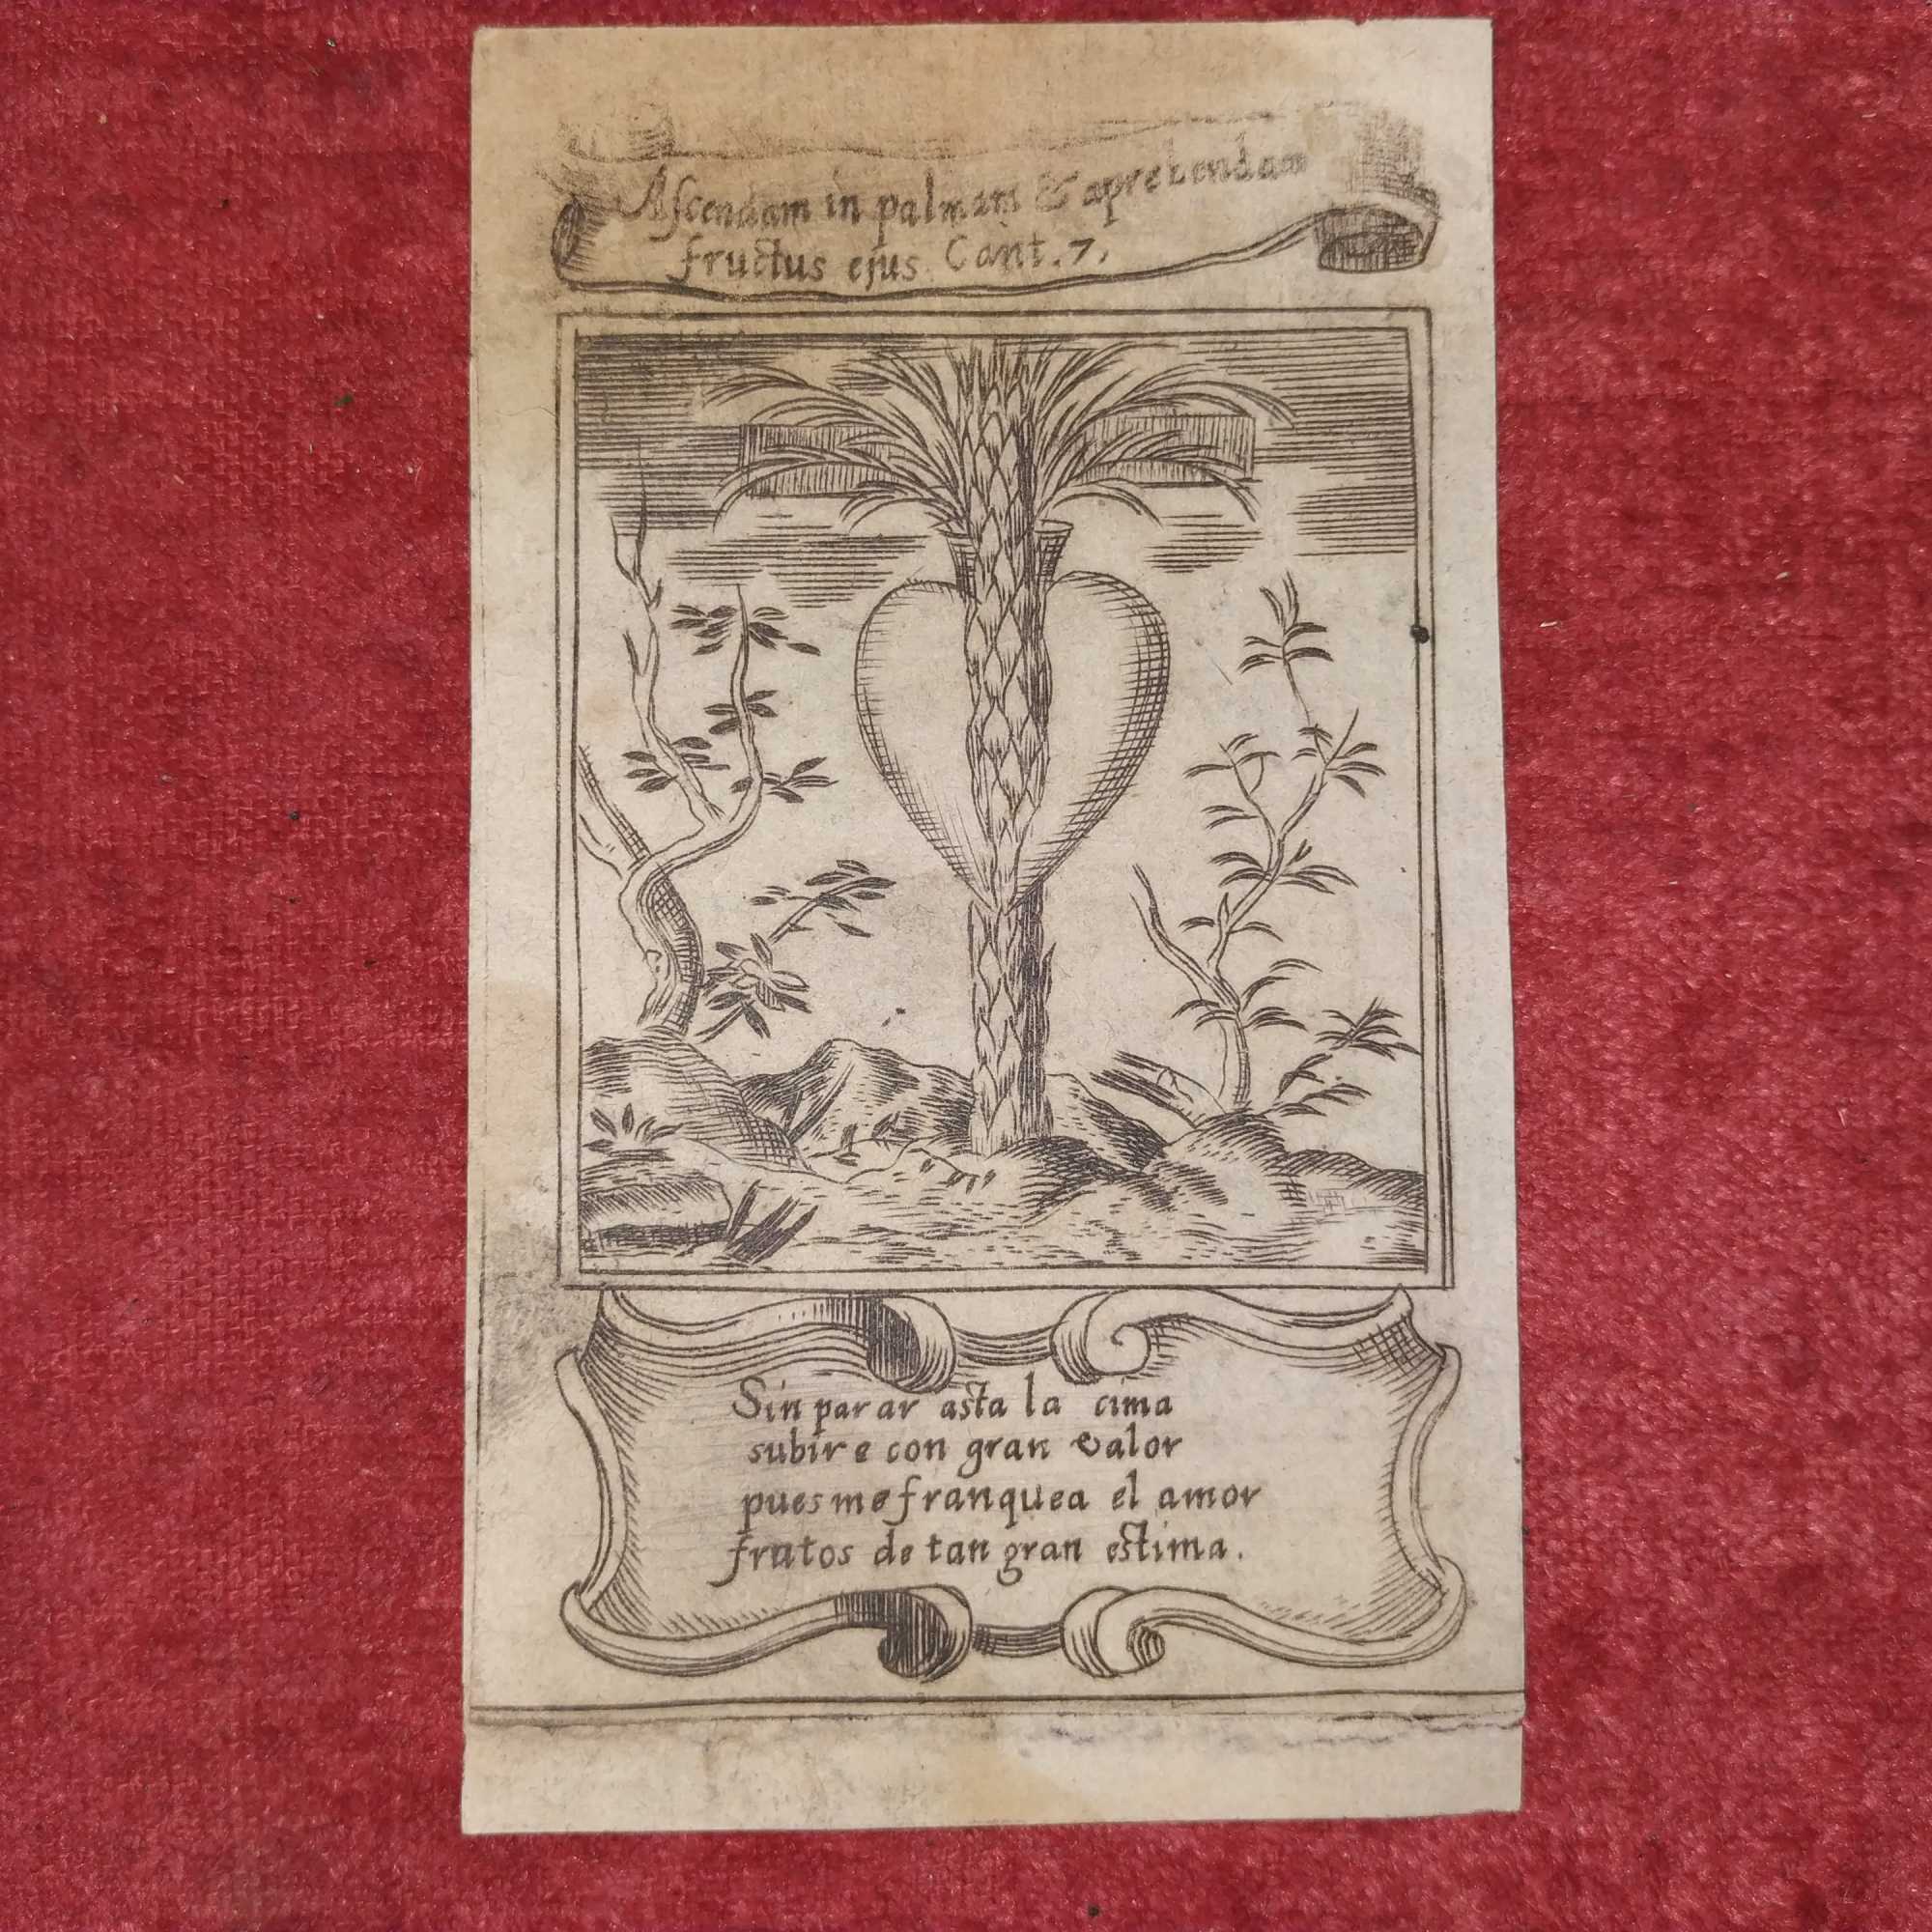 Ascendam in palmam & aprehendam
fructus ejus Cant. 7.
Sin parar asta la cima
subire con gran valor
pues me franquea el amor
frutos de tan gran estima.